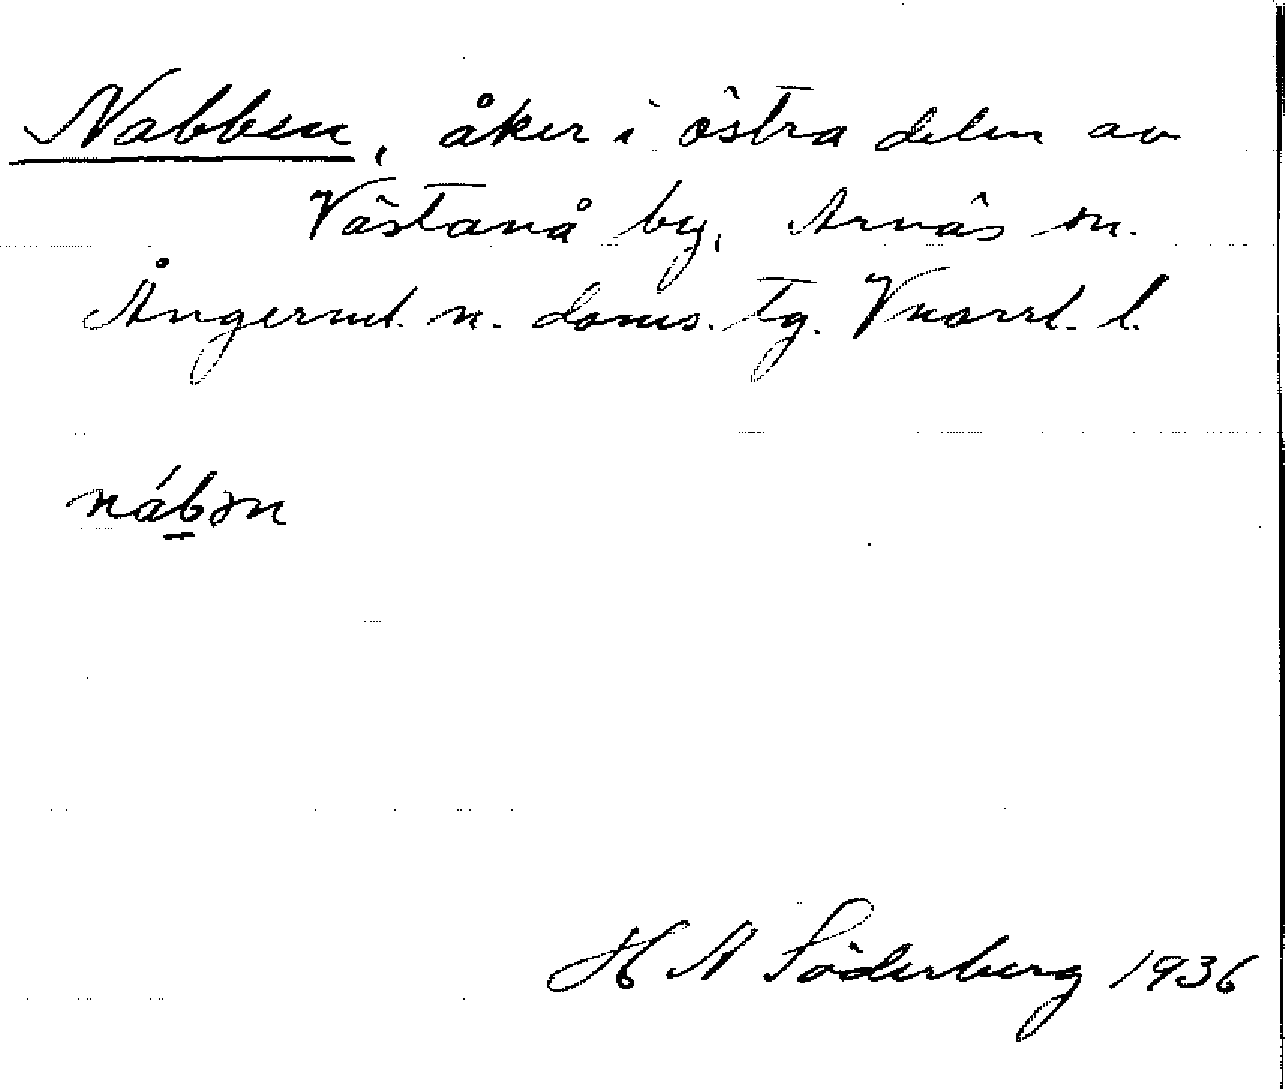 Nabben, åker i östra delen av
Västanå by, Arnäs sn.
Ångerml. n. doms. tg. Vnorrl. l.
nábən
H N Söderberg 1936